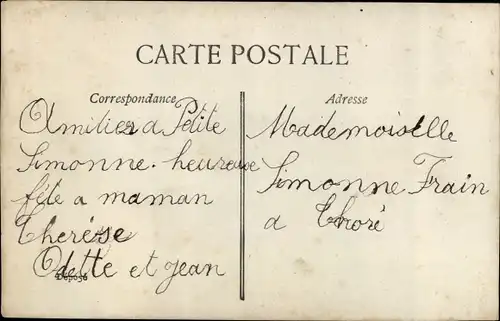 CARTE POSTALE
Correspondance
Amitiés a Petite
Simonne. heureuse
fête a maman
Therèse
Odette et jean
Adresse
Mademoiselle
Simonne Frain
a Thoré